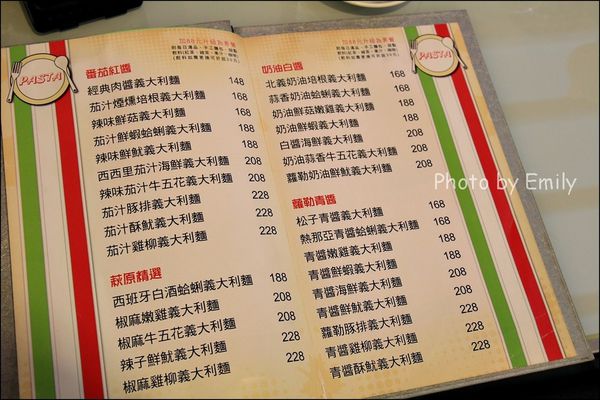 PASTA
加88元升級為套餐
附每日湯品、手工麵包、甜點
番茄紅醬
經典肉醬義大利麵 148
茄汁煙燻培根義大利麵 168
辣味鮮菇義大利麵 168
茄汁鮮蝦蛤蜊義大利麵 188
辣味鮮魷義大利麵 188
西西里茄汁海鮮義大利麵 208
辣味茄汁牛五花義大利麵 208
茄汁豚排義大利麵 228
茄汁酥魷義大利麵 228
茄汁雞柳義大利麵 228
萩原精選
西班牙白酒蛤蜊義大利麵 188
椒麻嫩雞義大利麵 208
椒麻牛五花義大利麵 208
辣子鮮魷義大利麵 228
椒麻雞柳義大利麵 228
加88元升級為套餐
附每日湯品、手工麵包、甜點
PASTA
奶油白醬
北義奶油培根義大利麵 168
蒜香奶油蛤蜊義大利麵 168
奶油鮮菇嫩雞義大利麵 188
奶油鮮蝦義大利麵 188
白醬海鮮義大利麵 208
奶油蒜香牛五花義大利麵 208
蘿勒奶油鮮魷義大利麵 208
蘿勒青醬
松子青醬義大利麵 168
熱那亞青醬蛤蜊義大利麵 168
青醬嫩雞義大利麵 188
青醬鮮蝦義大利麵 188
青醬海鮮義大利麵 208
青醬鮮魷義大利麵 208
蘿勒豚排義大利麵 228
青醬雞柳義大利麵 228
青醬酥魷義大利麵 228
Photo by Emily